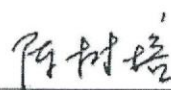 陈树培